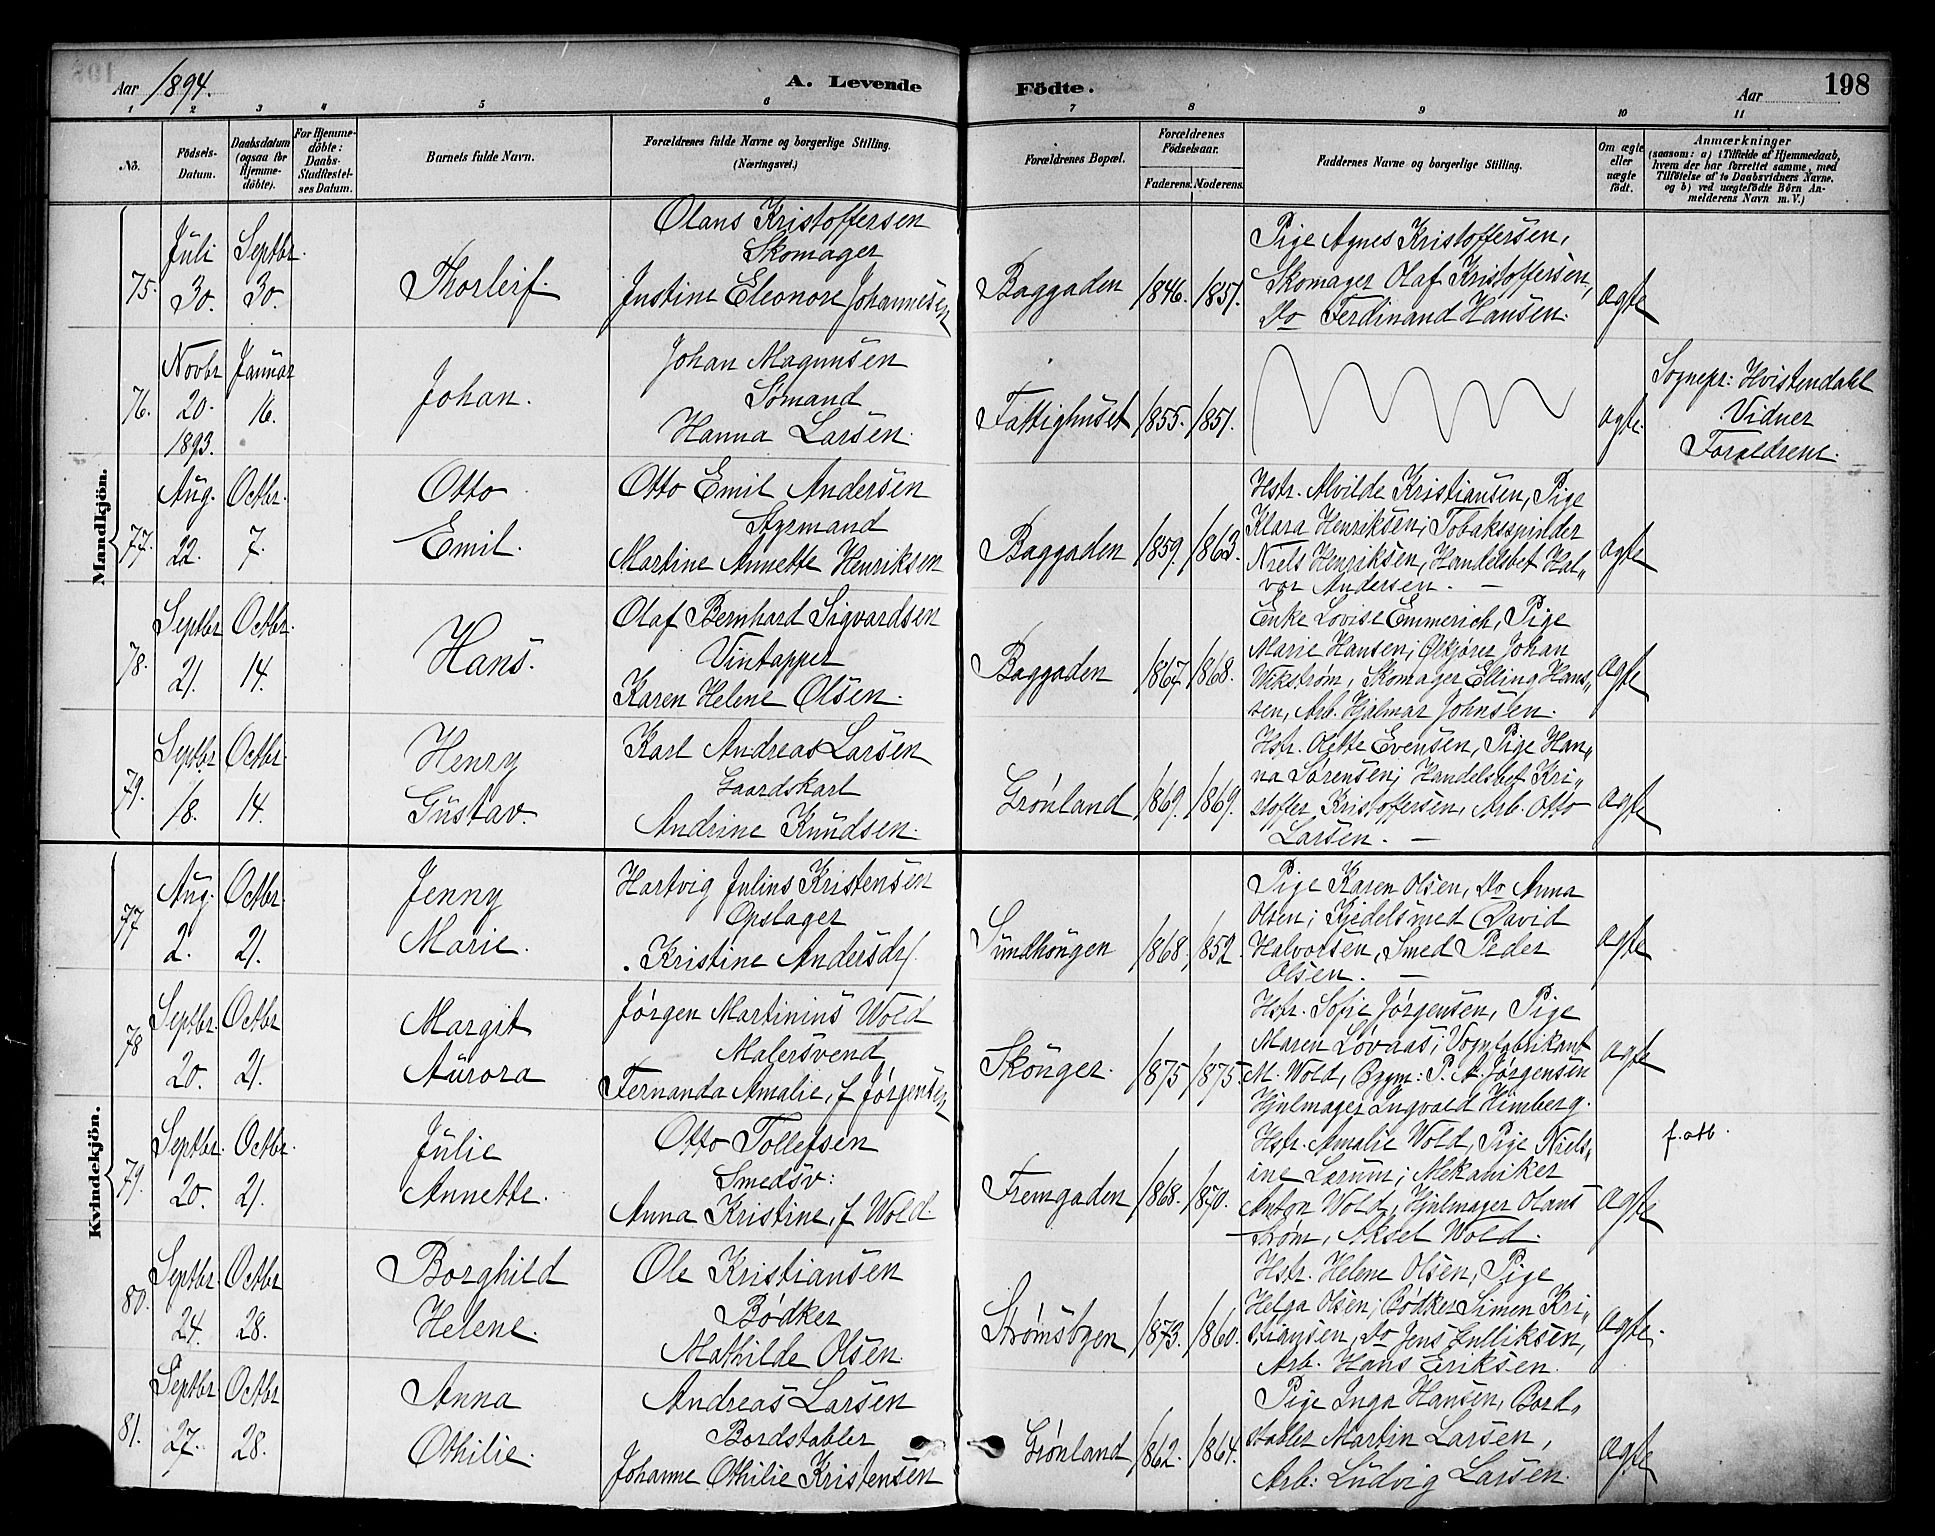 Aar 1894. A. Levende Födte. Aar 198
1 2 3 4 5 6 7 8 9 10 11
No.
Födsels-
Datum.
Daabsdatum
(ogsaa for
Hjemme-
döbte).
For Hjemme-
döbte:
Daabs-
Stadfæstel-
ses Datum.
Barnets fulde Navn.
Forældrenes fulde Navne og borgerlige Stilling.
(Næringsvei.)
Forældrenes Bopæl.
Forældrenes
Födselsaar.
Faderens. Moderens.
Faddernes Navne og borgerlige Stilling.
Om ægte
eller
uægte
födt.
Anmærkninger
(saasom: a) i Tilfælde af Hjemmedaab,
hvem der har forrettet samme, med
Tilföielse af to Daabsvidners Navne.
og b) ved uægtefödte Börn An-
melderens Navn m.V.)
Mandkjön.
75.
Juli
30.
Septbr.
30.
Thorleif.
Olaus Kristoffersen
Skomager
Justine Eleonore Johannesen
Baggaden
1846. 1851.
Pige Agnes Kristoffersen,
Skomager Olaf Kristoffersen,
Do Ferdinand Hansen.
ægte
76.
Novbr
20.
1893.
Januar
16.
Johan.
Johan Magnusen
Sømand
Hanna Larsen.
Fattighuset
1855. 1851.
ægte.
Sognepr: Hvistendahl
Vidner
Forældrene.
77.
Aug.
22.
Octbr.
7.
Otto
Emil.
Otto Emil Andersen
Styrmand
Martine Annette Henriksen
Baggaden
1859. 1863.
Hstr. Alvilde Kristiansen, Pige
Klara Henriksen; Tobaksspinder
Niels Henriksen, Handelsbet Hal„
vor Andersen. —
ægte
78.
Septbr
21.
Octbr.
14.
Hans.
Olaf Bernhard Sigvardsen
Vintapper
Karen Helene Olsen.
Baggaden
1867. 1868.
Enke Lovise Emmerich, Pige
Marie Hansen; Ølkjører Johan
Wikstrøm, Skomager Elling Hans„
sen, Arb. Hjalmar Johnsen.
ægte
79.
Septbr
18.
Octbr.
14.
Henry
Gustav.
Karl Andreas Larsen
Gaardskarl
Andrine Knudsen.
Grønland
1869. 1869.
Hstr. Olette Evensen, Pige Han„
na Sørensen; Handelsbet Kri„
stoffer Kristoffersen, Arb. Otto
Larsen. —
ægte
Kvindekjön.
77
Aug.
2.
Octbr.
21.
Jenny
Marie.
Hartvig Julius Kristensen
Opslager
Kristine Andersdr.
Sundhougen
1868. 1852.
Pige Karen Olsen, Do Anna
Olsen; Kjedelsmed David
Halvorsen, Smed Peder
Olsen. —
ægte
78
Septbr.
20.
Octbr
21.
Margit
Aurora
Jørgen Martinius Wold
Malersvend
Fernanda Amalie, f Jørgensen
Skouger.
1875 1875.
Hstr. Sofie Jørgensen, Pige
Maren Løvaas; Vognfabrikant
M. Wold, Bygm: P. A. Jørgensen
Hjulmager Ingvald Himberg.
ægte
79.
Septbr.
20.
Octbr.
21.
Julie
Annette.
Otto Tollefsen
Smedsv:
Anna Kristine, f Wold.
Fremgaden
1868. 1870.
Hstr. Amalie Wold, Pige Niels„
ine Larum; Mekaniker
Anton Wold, Hjulmager Olaus
Strøm, Aksel Wold.
ægte.
f. att.
80.
Septbr
24.
Octbr
28.
Borghild
Helene.
Ole Kristiansen
Bødker
Mathilde Olsen.
Strømsbyen
1873. 1860.
Hstr. Helene Olsen, Pige
Helga Olsen; Bødker Simen Kri„
stiansen, Do Jens Gulliksen,
Arb. Hans Eriksen.
ægte.
81.
Septbr
27.
Octbr
28.
Anna
Othilie.
Andreas Larsen
Bordstabler
Johanne Othilie Kristensen
Grønland
1862. 1864.
Pige Inga Hansen, Bord„
stabler Martin Larsen,
Arb: Ludvig Larsen.
ægte